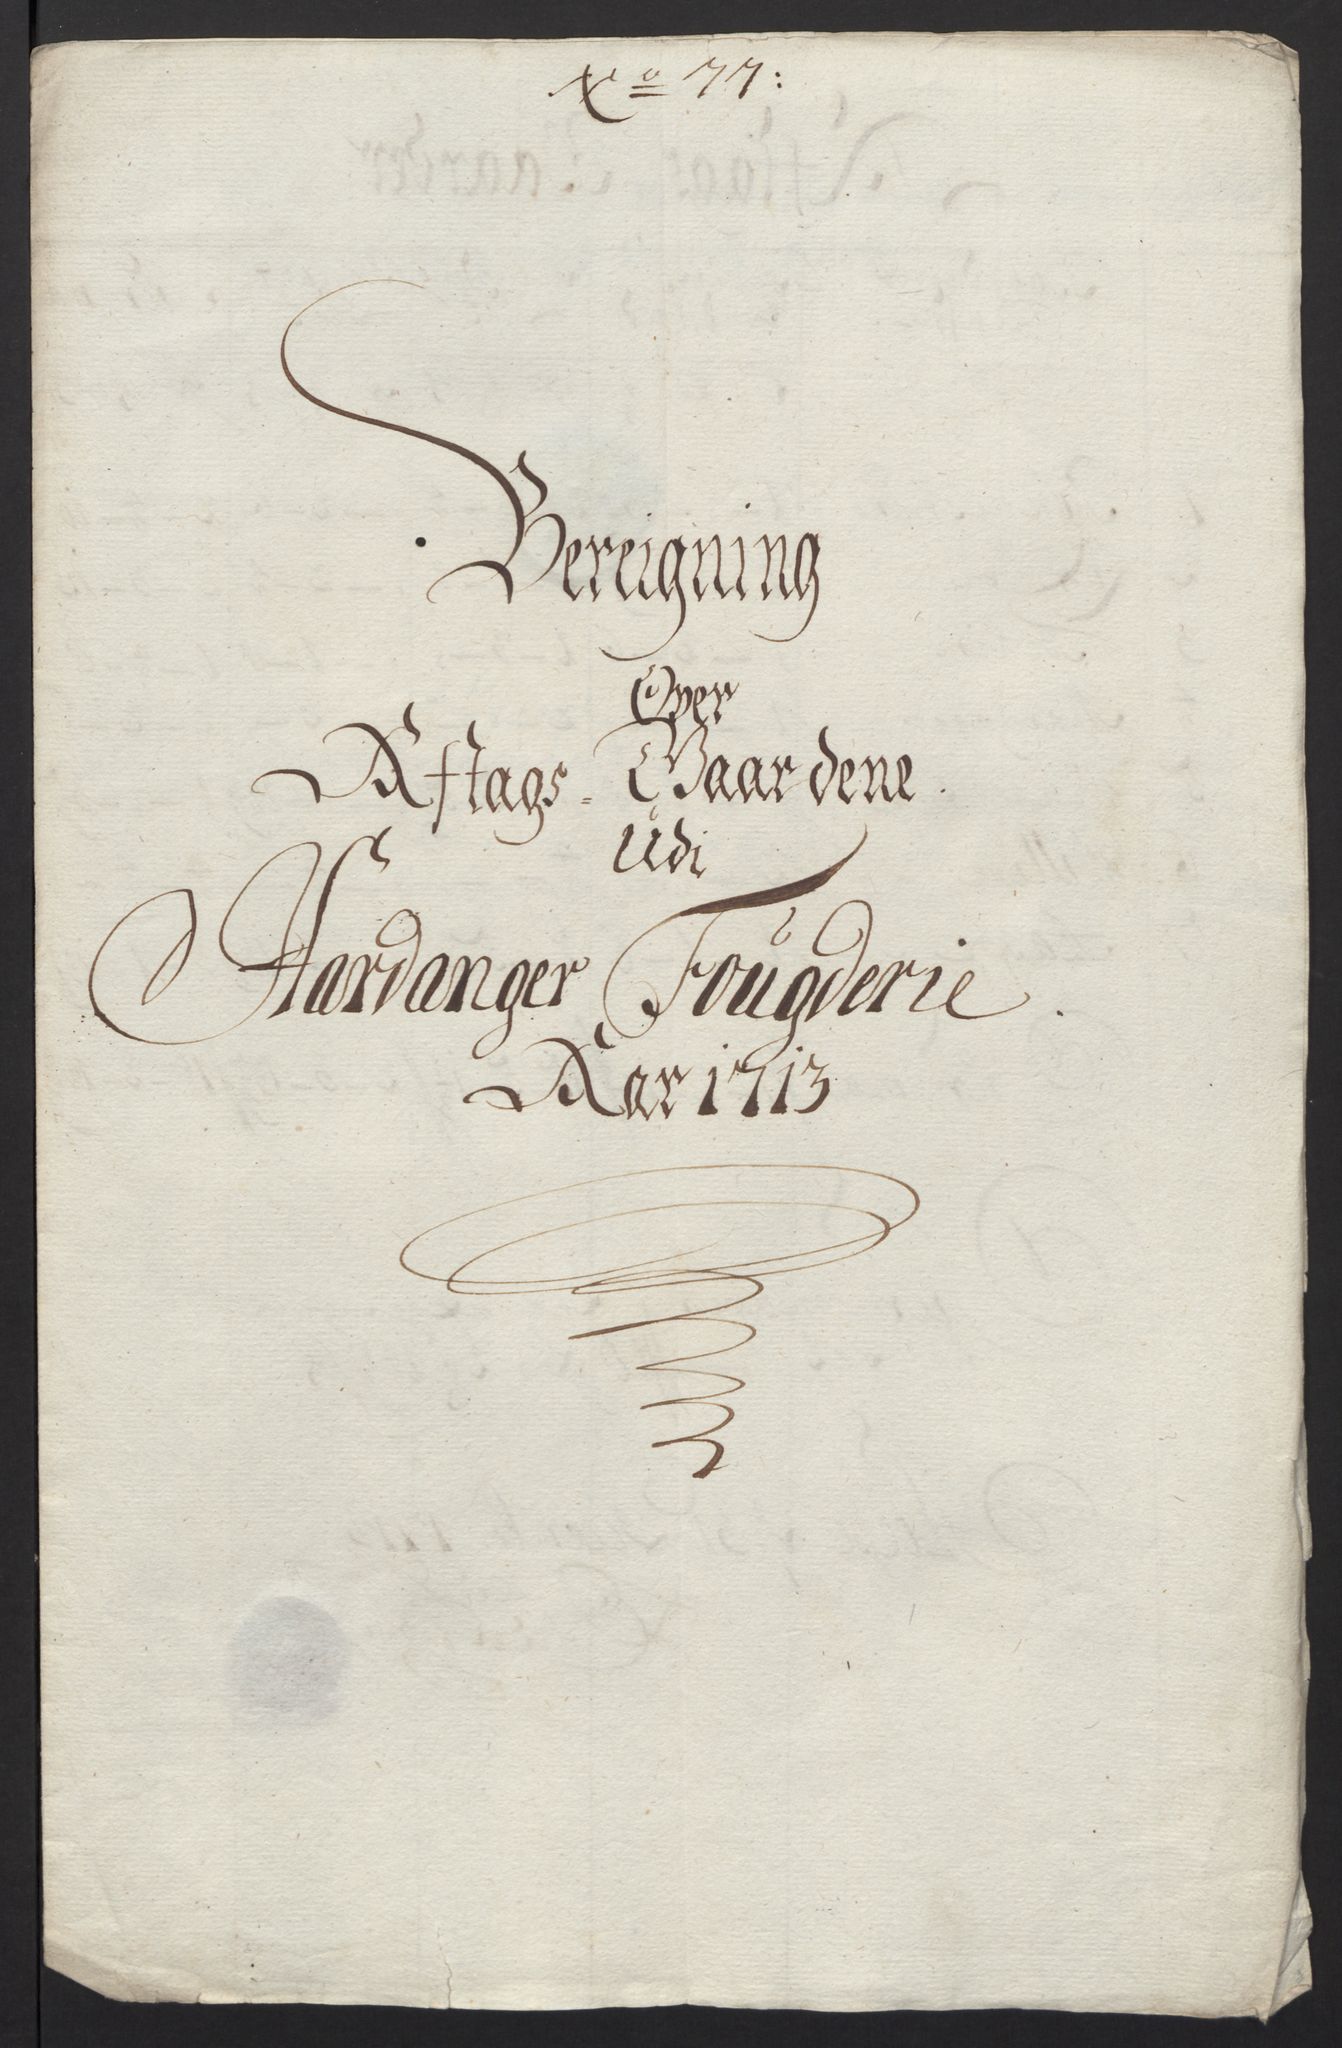 No 77:
Bereigning
Over
Aftags- Gaardene
Udi
Hardanger Fougderie.
Aar 1713